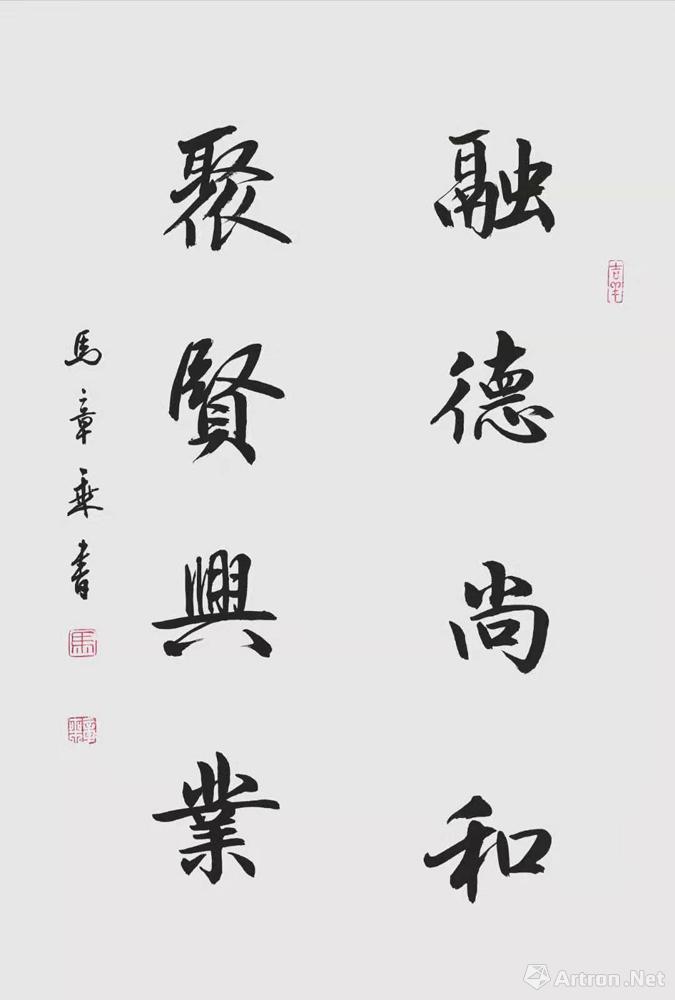 融德尚和
聚賢興業
馬章乘書
馬
Artron.Net